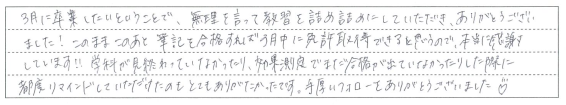 3月に卒業したいということで、無理を言って教習を詰め詰めにしていただき、ありがとうござい
ました！このままこのあと筆記も合格すれば3月中に免許取得できると思うので、本当に感謝
しています!! 学科が見終わっていなかったり、効果測定でまだ合格が出ていなかったりした際に
都度リマインドしていただけたのもとてもありがたかったです。手厚いフォローをありがとうございました♡